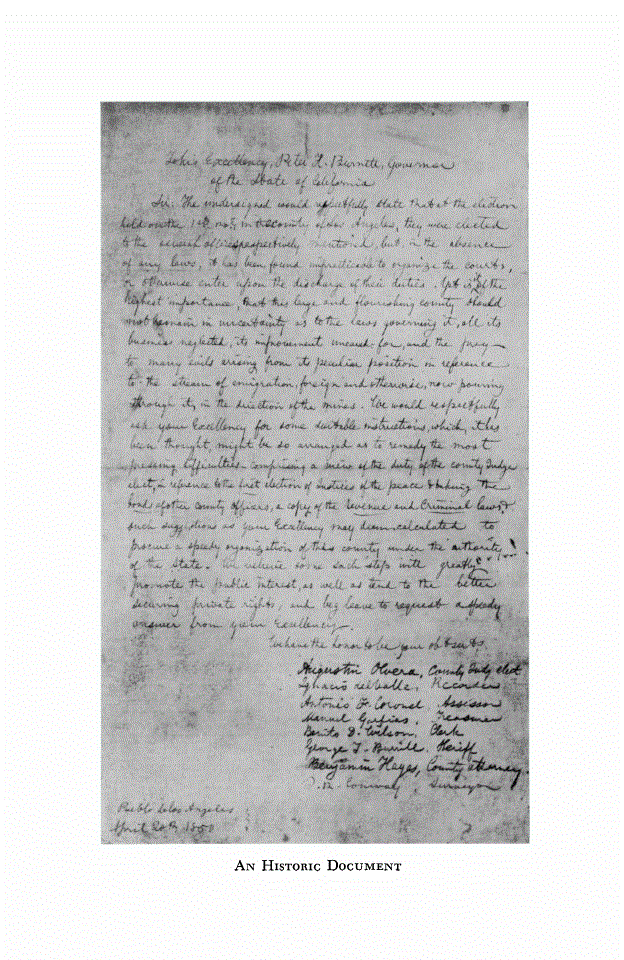 To his Excellency, Peter H. Burnett, Governor
of the State of California
Sir: The undersigned would respectfully state that at the election
held on the 1st inst, in the county of Los Angeles, they were elected
to the several offices respectively mentioned, but in the absence
of any laws, it has been found impracticable to organize the courts,
or otherwise enter upon the discharge of their duties. Yet it is of the
highest importance, that this large and flourishing county should
not remain in uncertainty as to the laws governing it, all its
business neglected, its improvement uncared for, and the prey
to many evils arising from its peculiar position in reference
to the stream of emigration, foreign and otherwise, now pouring
through it, in the direction of the mines. We would respectfully
ask your Excellency for some suitable instructions, which, it has
been thought, might be so arranged as to remedy the most
pressing difficulties comprising a view of the duty of the county Judge
elect, in reference to the first election of Justices of the peace & the
bond of other county officers, a copy of the Revenue and Criminal laws, &
such suggestions as your Excellency may deem calculated to
procure a speedy organization of this county under the authority
of the State. We believe some such steps will greatly
promote the public interest, as well as tend to the better
securing private rights, and beg leave to request a speedy
answer from your Excellency.
We have the honor to be your obt servts
Augustin Olvera, County Judge elect
Ignacio del Valle, Recorder
Antonio F. Coronel Assessor
Manuel Garfias, Treasurer
Benito D. Wilson, Clerk
George T. Burrill, Sheriff
Benjamin Hayes, County Attorney
J. R. Conway, Surveyor
Pueblo de los Angeles
April 20th 1850
AN HISTORIC DOCUMENT